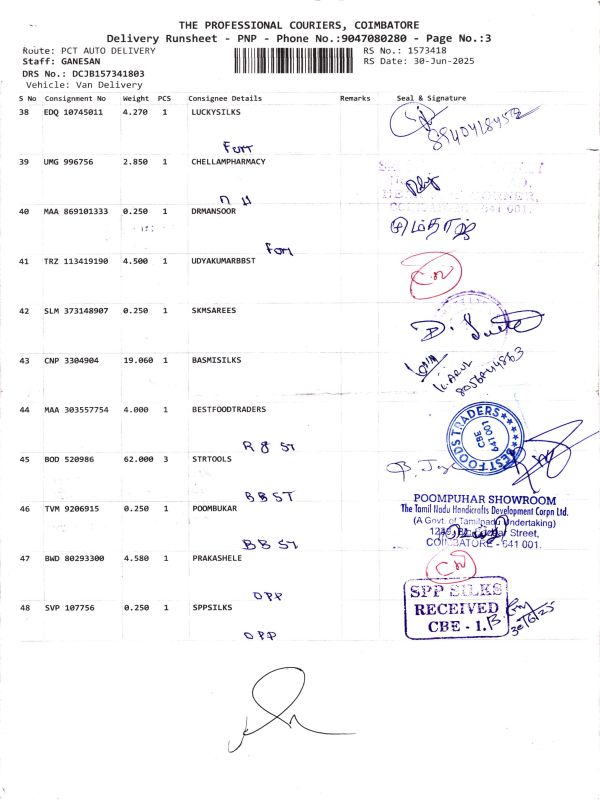 THE PROFESSIONAL COURIERS, COIMBATORE
Delivery Runsheet - PNP - Phone No.:9047080280 - Page No.:3
Route: PCT AUTO DELIVERY RS No.: 1573418
Staff: GANESAN RS Date: 30-Jun-2025
DRS No.: DCJB157341803
Vehicle: Van Delivery
S No Consignment No Weight PCS Consignee Details Remarks Seal & Signature
38 EDQ 10745011 4.270 1 LUCKYSILKS
Fort
39 UMG 996756 2.850 1 CHELLAMPHARMACY
40 MAA 869101333 0.250 1 DRMANSOOR
Fort
41 TRZ 113419190 4.500 1 UDYAKUMARBBST
42 SLM 373148907 0.250 1 SKMSAREES
43 CNP 3304904 19.060 1 BASMISILKS
8056444863
44 MAA 303557754 4.000 1 BESTFOODTRADERS
BEST FOODS TRADERS
CBE
641 001
R 8 ST
45 BOD 520986 62.000 3 STRTOOLS
BBST
46 TVM 9206915 0.250 1 POOMBUKAR
POOMPUHAR SHOWROOM
The Tamil Nadu Handicrafts Development Corpn Ltd.
(A Govt. of Tamilnadu Undertaking)
Street,
COIMBATORE - 641 001.
BBST
47 BWD 80293300 4.580 1 PRAKASHELE
OPP
48 SVP 107756 0.250 1 SPPSILKS
SPP SILKS
RECEIVED
CBE - 1.
30/6/25
OPP